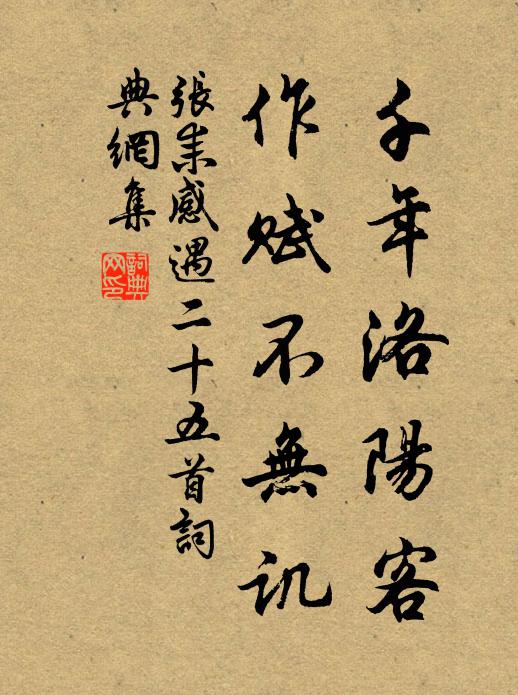 千年洛陽客
作賦不無訊
張耒感遇二十五首詞
典網集
詞典网印